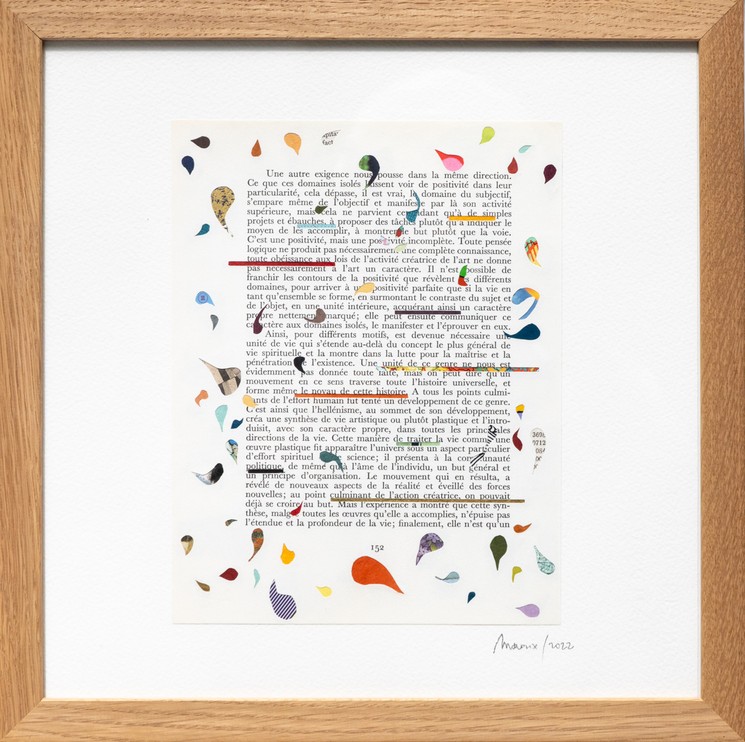 Une autre exigence nous pousse dans la même direction.
Ce que ces domaines isolés laissent voir de positivité dans leur
particularité, cela dépasse, il est vrai, le domaine du subjectif,
s'empare même de l'objectif et manifeste par là son activité
supérieure, mais cela ne parvient cependant qu'à de simples
projets et ébauches, à proposer des tâches plutôt qu'à indiquer le
moyen de les accomplir, à montrer le but plutôt que la voie.
C'est une positivité, mais une positivité incomplète. Toute pensée
logique ne produit pas nécessairement une complète connaissance,
toute obéissance aux lois de l'activité créatrice de l'art ne donne
pas nécessairement à l'art un caractère. Il n'est possible de
franchir les contours de la positivité que révèlent les différents
domaines, pour arriver à une positivité parfaite que si la vie en
tant qu'ensemble se forme, en surmontant le contraste du sujet et
de l'objet, en une unité intérieure, acquérant ainsi un caractère
propre nettement marqué; elle peut ensuite communiquer ce
caractère aux domaines isolés, le manifester et l'éprouver en eux.
Ainsi, pour différents motifs, est devenue nécessaire une
unité de vie qui s'étende au-delà du concept le plus général de
vie spirituelle et la montre dans la lutte pour la maîtrise et la
pénétration de l'existence. Une unité de ce genre ne nous est
évidemment pas donnée toute faite, mais on peut dire qu'un
mouvement en ce sens traverse toute l'histoire universelle, et
forme même le noyau de cette histoire. A tous les points culmi-
nants de l'effort humain fut tenté un développement de ce genre.
C'est ainsi que l'hellénisme, au sommet de son développement,
créa une synthèse de vie artistique ou plutôt plastique et l'intro-
duisit, avec son caractère propre, dans toutes les principales
directions de la vie. Cette manière de traiter la vie comme
œuvre plastique fit apparaître l'univers sous un aspect particulier
d'effort spirituel de science; il présenta à la communauté
politique, de même qu'à l'âme de l'individu, un but général et
un principe d'organisation. Le mouvement qui en résulta, a
révélé de nouveaux aspects de la réalité et éveillé des forces
nouvelles; au point culminant de l'action créatrice, on pouvait
déjà se croire au but. Mais l'expérience a montré que cette syn-
thèse, malgré toutes les œuvres qu'elle a accomplies, n'épuise pas
l'étendue et la profondeur de la vie; finalement, elle n'est qu'un
152
2022